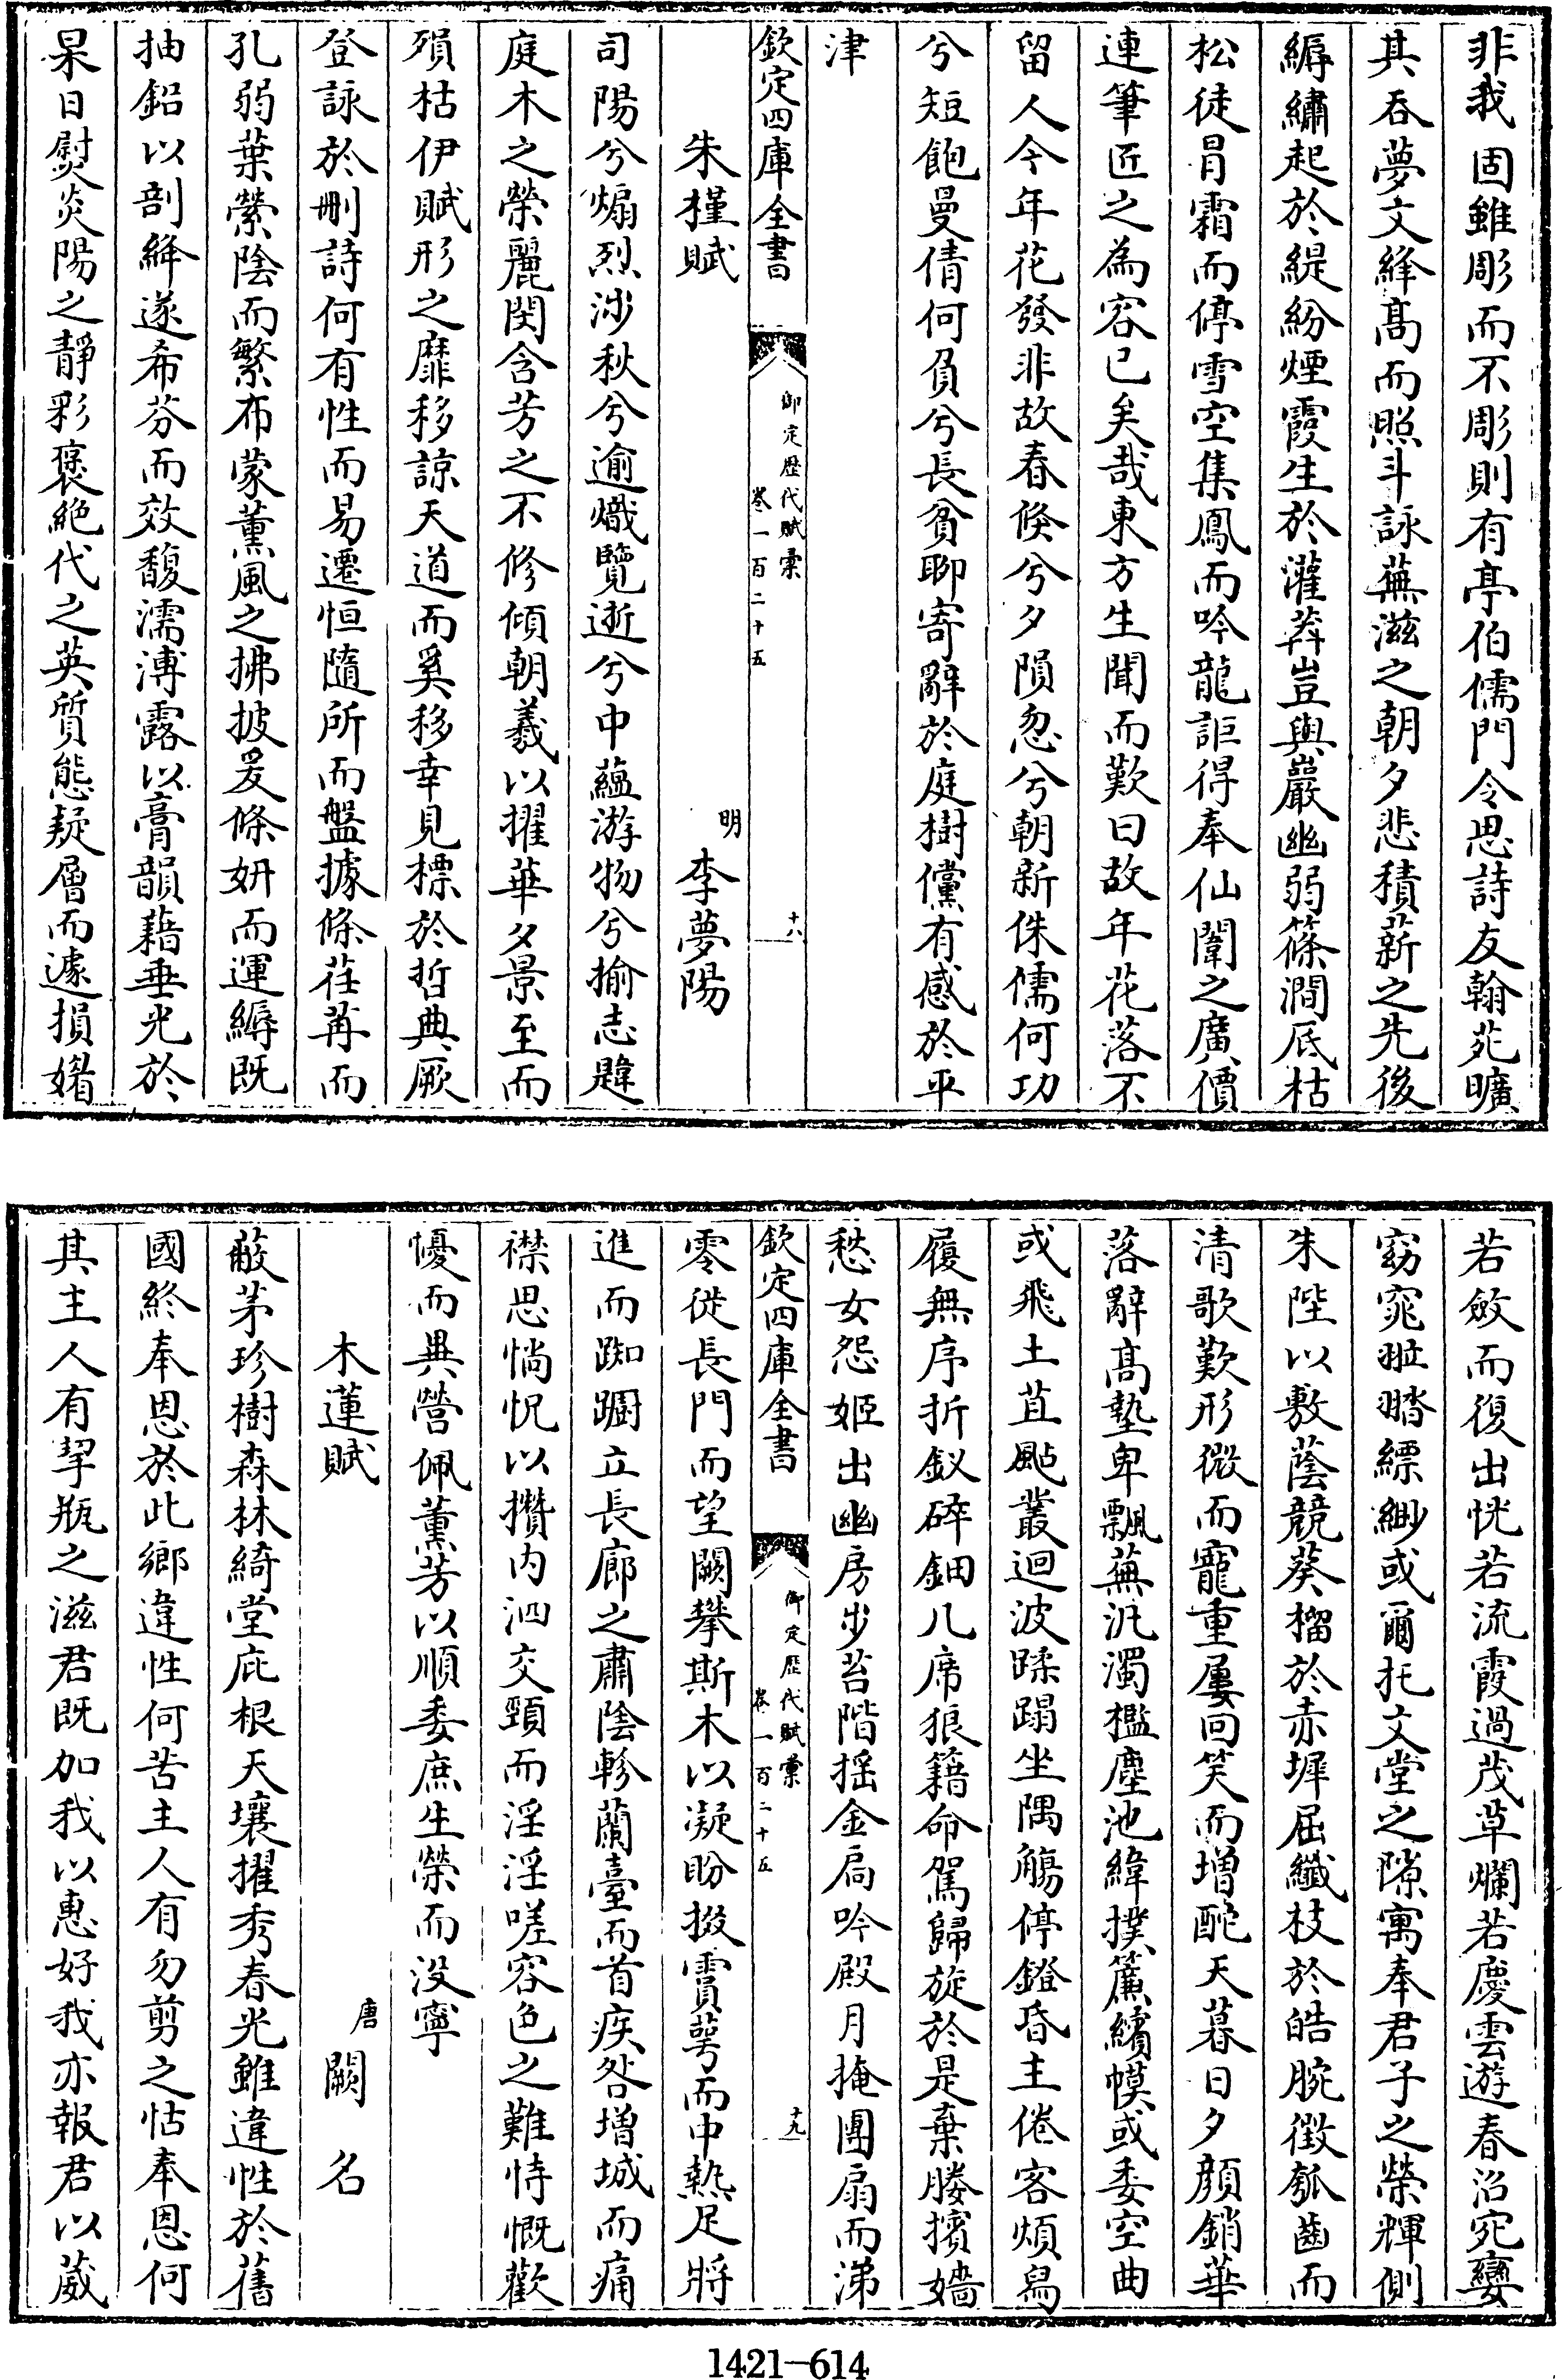 非我固雖彫而不彫則有亭伯儒門令思詩友翰苑曠
其吞夢文絳高而照斗詠蕪滋之朝夕悲積薪之先後
縟繡起於緹紛煙霞生於灌莽豈與巖幽弱篠澗底枯
松徒冒霜而停雪空集鳳而吟龍詎得奉仙闈之廣價
連筆匠之為容已矣哉東方生聞而歎曰故年花落不
留人今年花發非故春倏兮夕隕忽兮朝新侏儒何功
兮短飽曼倩何負兮長貧聊寄辭於庭樹儻有感於平
津
欽定四庫全書
御定歴代賦彙
卷一百二十五
十八
朱槿賦
明 李夢陽
司陽兮煽烈涉秋兮逾熾覽逝兮中蘊游物兮揄志韙
庭木之榮麗閔含芳之不修傾朝羲以擢華夕景至而
殞枯伊賦形之靡移諒天道而奚移幸見標於哲典厥
登詠於刪詩何有性而易遷恒隨所而盤據條荏苒而
孔弱葉縈陰而繁布蒙薰風之拂披爰條妍而運縟既
抽鉛以剖絳遂希芬而效馥濡溥露以膏韻藉垂光於
杲日熨炎陽之靜彩褎絶代之英質態疑層而遽損媎
若斂而復出恍若流霞過茂草爛若慶雲遊春沼宛孌
窈窕翋㲪縹緲或爾托文堂之隙寓奉君子之榮輝側
朱陛以敷蔭競葵榴於赤墀屈纎枝於皓腕徴瓠齒而
清歌歎形微而寵重屢回笑而增酡天暮日夕顏銷華
落辭髙墊卑飄蕪汎濁檻塵池緯撲簾繽幙或委空曲
或飛土苴颭叢迴波蹂蹋坐隅觴停鐙昏主倦客煩舄
履無序折釵碎鈿几席狼籍命駕歸旋於是棄媵擯嬙
愁女怨姬出幽房步苔階揺金扃吟殿月掩團扇而涕
欽定四庫全書
御定歴代賦彙
卷一百二十五
十九
零徙長門而望闕攀斯木以凝盼掇賈萼而中熱足將
進而踟躕立長廊之肅陰軫蘭臺而首疾咎增城而痛
襟思惝怳以攢内泗交頸而淫淫嗟容色之難恃慨歡
懮而異營佩薫芳以順委庶生榮而没寧
木蓮賦
唐 闕名
蔽茅珍樹森林綺堂庇根天壤擢秀春光雖違性於舊
國終奉恩於此鄉違性何苦主人有勿剪之怙奉恩何
其主人有挈瓶之滋君既加我以惠好我亦報君以葳
1421-614